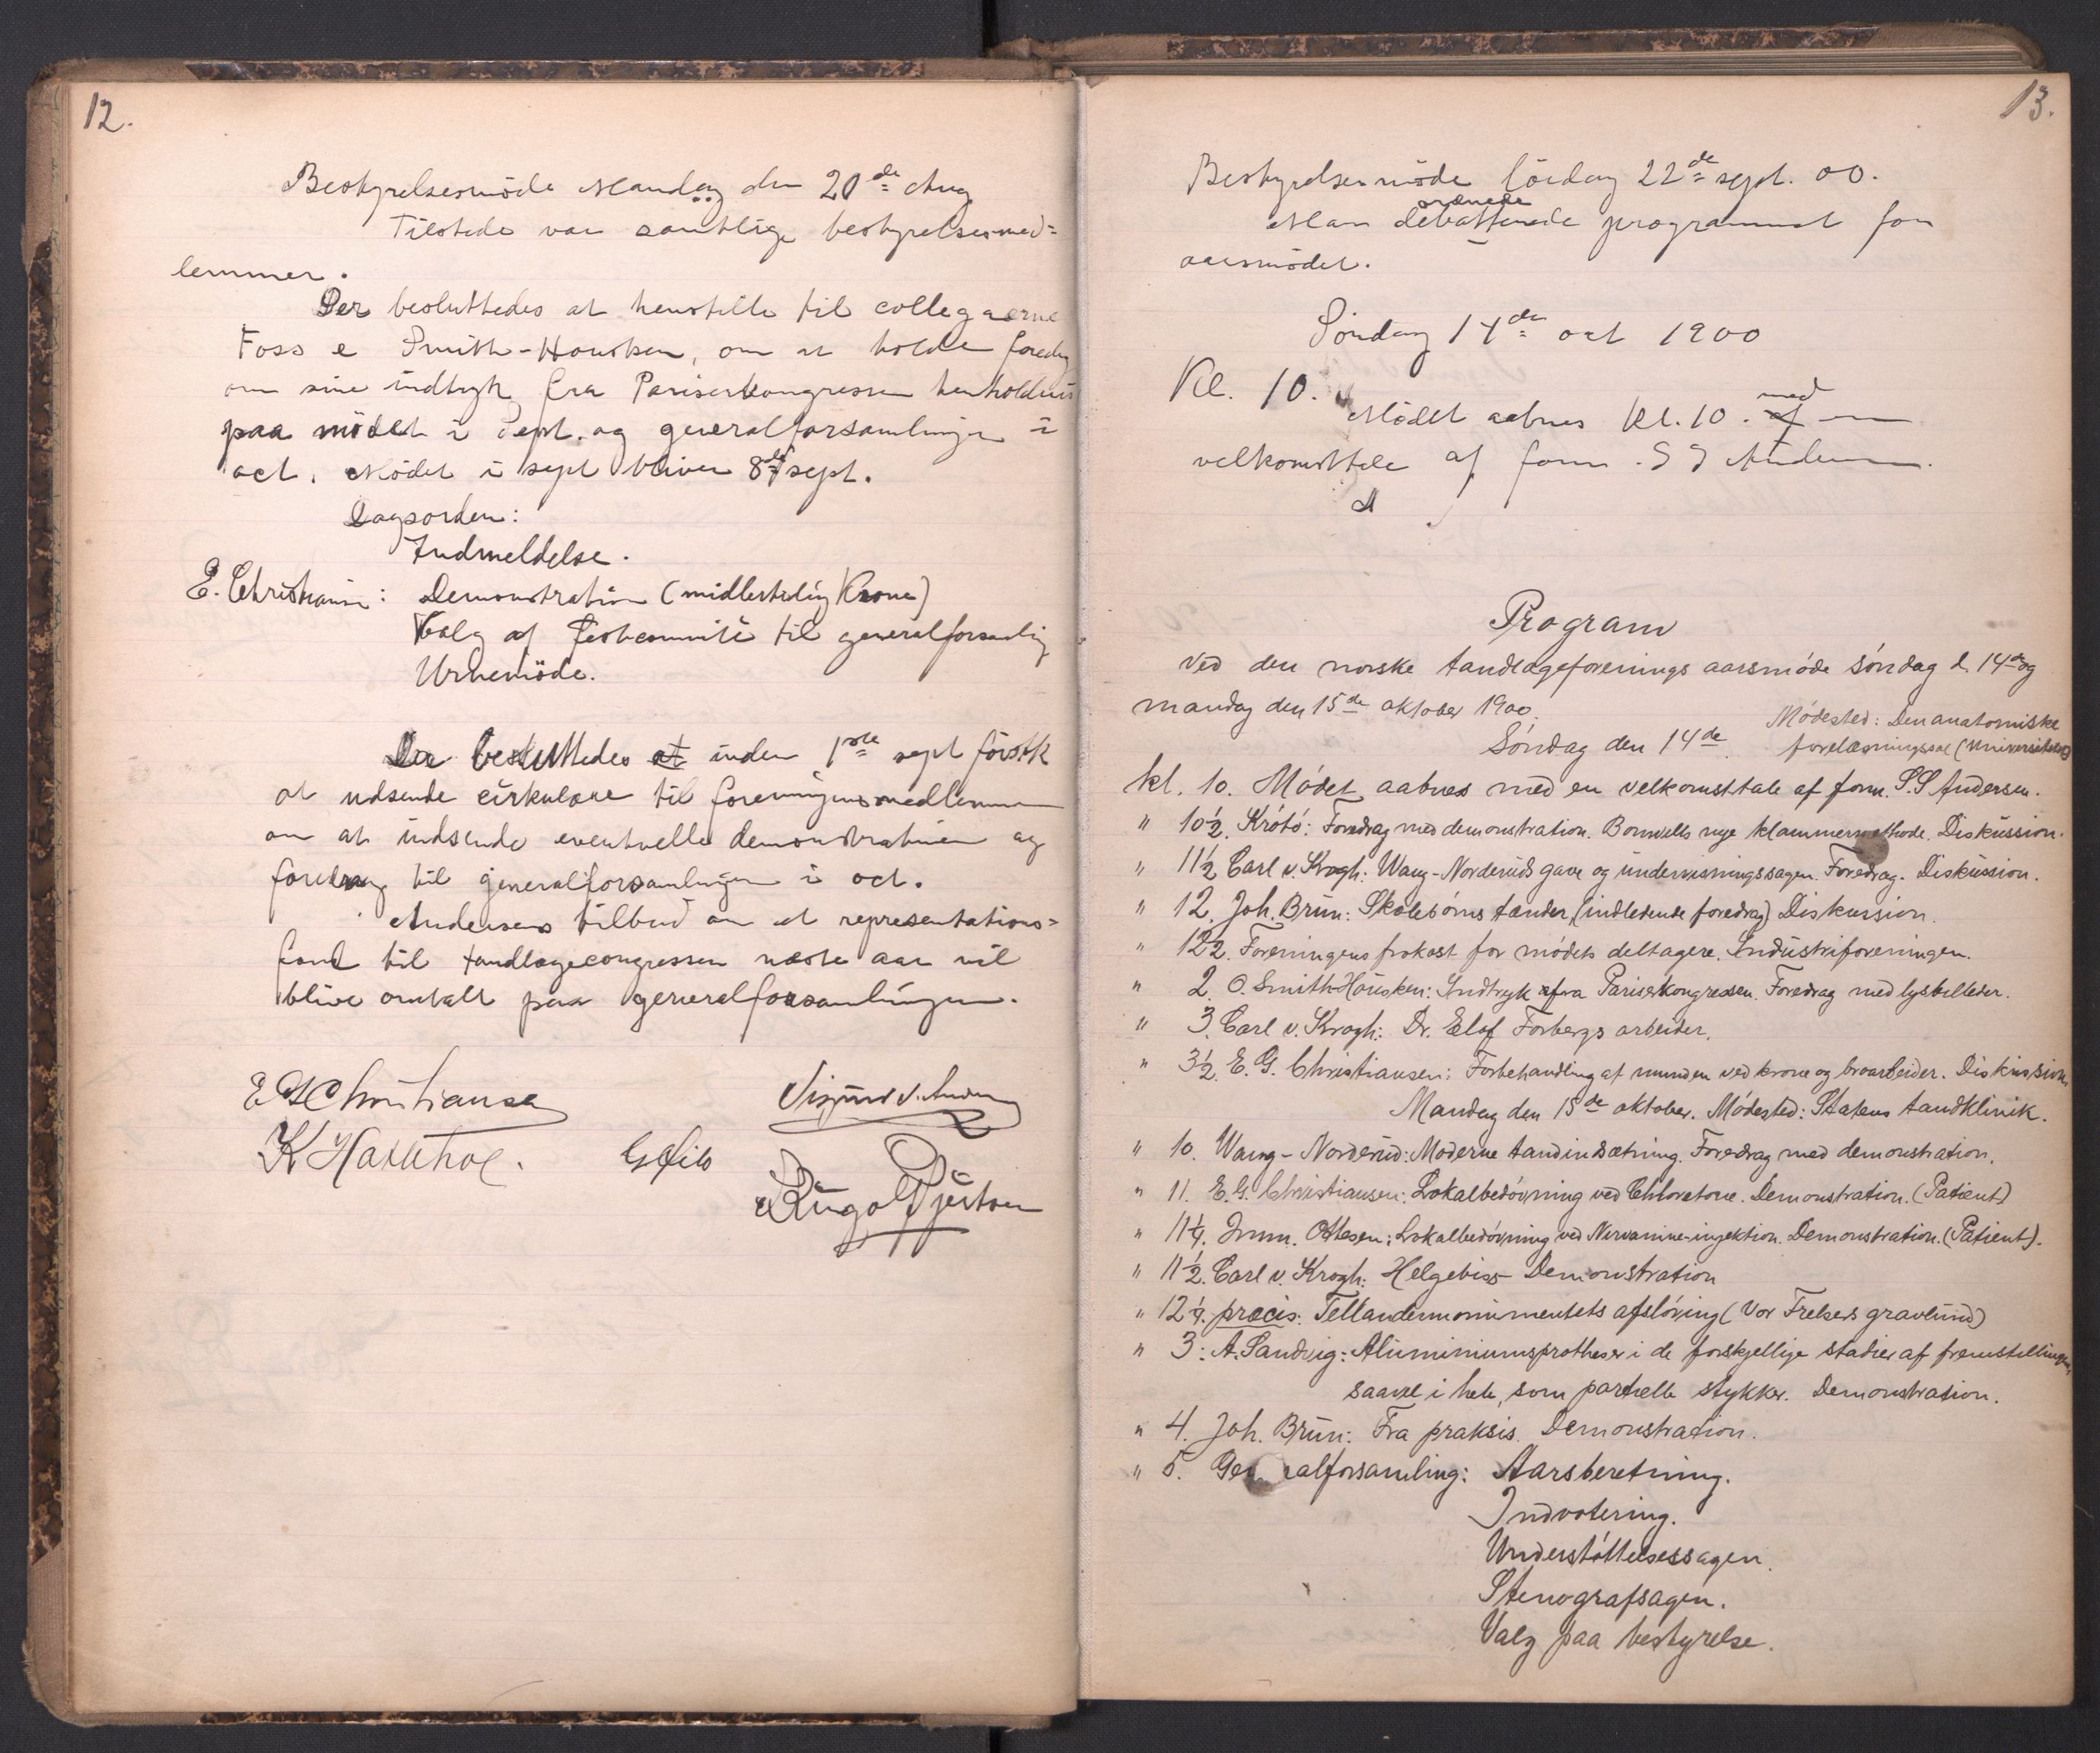 12.
Bestyrelsesmöde Mandag den 20de Aug
Tilstede var samtlige bestyrelsesmed=
lemmer.
Der besluttedes at henstille til collegaerne
Foss e Smith-Housken, om at holde foredrag
om sine indtryk fra Pariserkongressen henholdsvis
paa mödet i sept. og generalforsamlingen i
oct. Mödet i sept bliver 8de sept.
Dagsorden:
Indmeldelse.
E. Christiansen: Demonstration (midlertidig Krone)
Valg af festcomité til generalforsamling
Uxhemöde.
Der besluttedes at inden 1ste sept förstk
at udsende cirkulære til foreningens medlemmer
om at indsende eventuelle demonstrationer og
foredrag til generalforsamlingen i oct.
Andersens tilbud om et representations=
fond til tandlægecongressen næste aar vil
blive omtalt paa generalforsamlingen.
E G Christiansen
K Haxthov.
13.
Bestyrelsesmöde lördag 22de sept. 00.
ordnede
Man debatterede programmet for
aarsmödet.
Söndag 14de oct 1900
Kl. 10.
Mödet aabnes kl. 10. med af en
velkomsttale af form. S S Andersen.
Program
ved den norske tandlægeforenings aarsmóde sóndag d. 14de og
mandag den 15de oktober 1900.
Módested: Den anatomiske
Sóndag den 14de. forelæsningssal (Universitetet)
kl. 10. Módet aabnes med en velkomsttale af form. S.S Andersen.
" 10½. Krótó: Foredrag med demonstration. Bonwills nye klammermethode. Diskussion.
" 11½ Carl v. Krogh: Wang-Norderuds gave og undervisningssagen. Foredrag. Diskussion.
" 12. Joh. Brun: Skolebórns tænder, (indledende foredrag) Diskussion.
" 12½. Foreningens frokost for módets deltagere. Industriforeningen.
" 2. O. Smith-Housken: Indtryk fra Pariserkongressen. Foredrag med lysbilleder.
" 3. Carl v. Krogh: Dr. Elof Förbergs arbeider.
" 3½. E. G. Christiansen: Forbehandling af munden ved krone og broarbeider. Diskussion.
Mandag den 15de oktober. Módested: Statens tandklinik.
" 10. Wang-Norderud: Moderne tandindsætning. Foredrag med demonstration.
" 11. E. G. Christiansen: Lokalbedóvning ved Chloretone. Demonstration. (Patient)
" 11¼. Imm. Ottesen: Lokalbedóvning ved Nirvanine-injektion. Demonstration. (Patient).
" 11½. Carl v. Krogh: Helgebiss Demonstration
" 12¼. præcis: Tellandermonumentets afslóring (Vor Frelsers gravlund)
" 3: A. Sandvig: Aluminiumsprotheser i de forskjellige stadier af fremstillingen,
saavel i hele, som partielle stykker. Demonstration.
" 4. Joh. Brun: Fra praksis. Demonstration.
" 5. Generalforsamling: Aarsberetning.
Indvotering.
Understóttelsessagen.
Stenografsagen.
Valg paa bestyrelse.